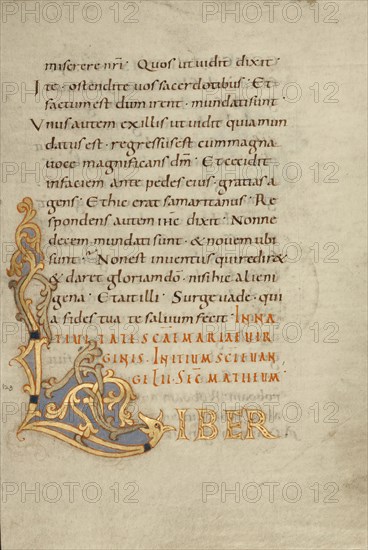 miserere nr̄i · Quos ut uidit dixit ·
Ite · ostendite uos sacerdotibus · Et
factum est dum irent · mundati sunt ·
Vnus autem ex illis ut uidit quia mun
datus est · regressus est cum magna
uoce magnificans dm̄ · Et cecidit
in faciem ante pedes eius · gratias a
gens · Et hic erat samaritanus · Re
spondens autem ihc̄ dixit · Nonne
decem mundati sunt · & nouem ubi
sunt · Non est inuentus qui redir&
& dar& gloriam dō · nisi hic alieni
gena · Et ait illi · Surge uade · qui
a fides tua te saluum fecit · IN NA
TIVITATE SC̄AE MARIAE VIR
GINIS · INITIUM SC̄I EVAN
GELII · SEC̄ MATHEUM ·
LIBER
PHOTO 12